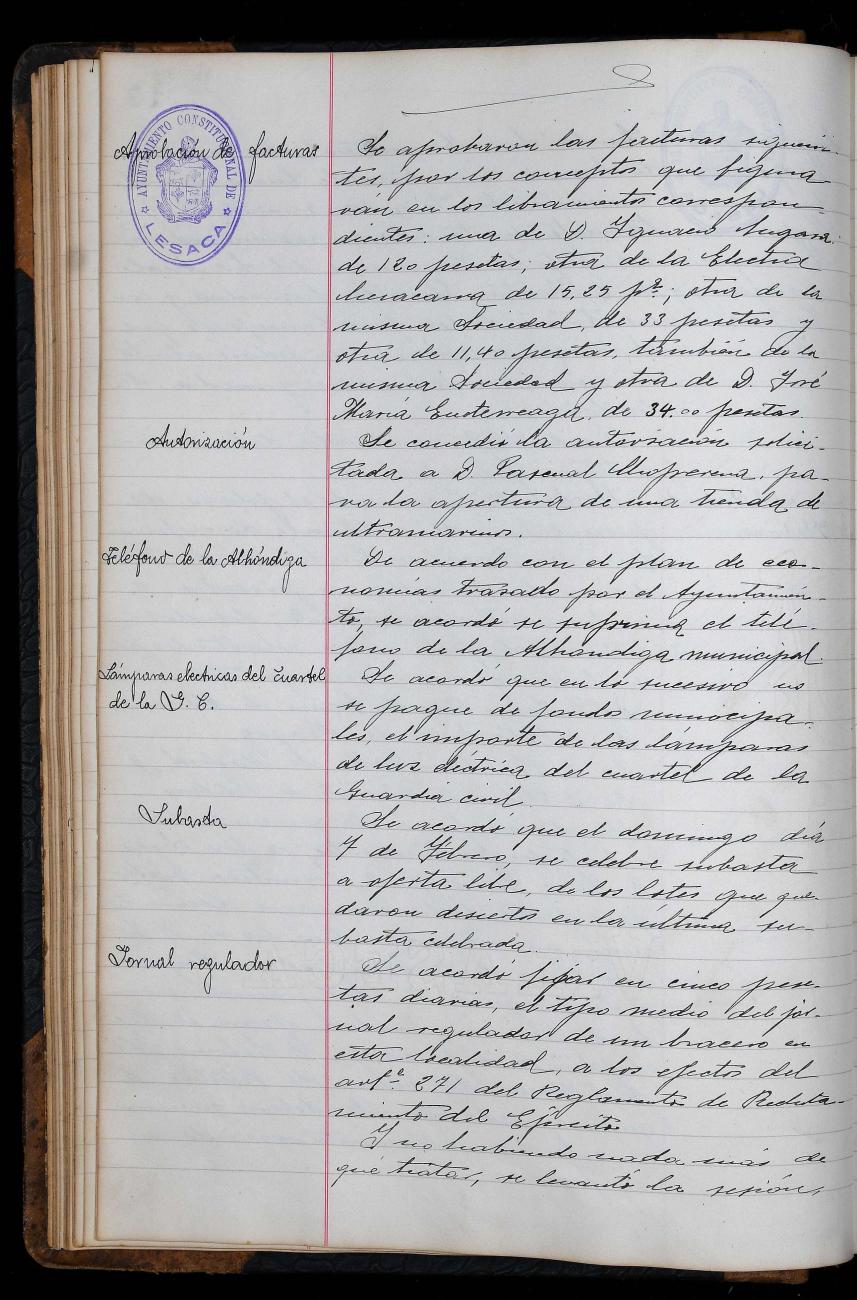 AYUNTAMIENTO CONSTITUCIONAL DE
LESACA
Aprobación de facturas
Se aprobaron las facturas siguien-
tes, por los conceptos que figura
ran en los libramientos correspon-
dientes: una de D. Ignacio
de 120 pesetas; otra de la Electra
lesacana de 15,25 pts; otra de la
misma Sociedad, de 33 pesetas y
otra de 11,40 pesetas, también de la
misma Sociedad y otra de D. José
María Endterreaga, de 34.00 pesetas.
Autorización
Se concedió la autorización solici-
tada a D. Pascual Mugerena, pa-
ra la apertura de una tienda de
ultramarinos.
Teléfono de la Alhóndiga
De acuerdo con el plan de eco-
nomías trasado por el Ayuntamien-
to, se acordó se suprima el telé-
fono de la Alhóndiga municipal.
Lámparas electricas del cuartel
de la G. C.
Se acordó que en lo sucesivo no
se pague de fondos municipa-
les, el importe de las lámparas
de luz eléctrica del cuartel de la
Guardia civil.
Subasta
Se acordó que el domingo día
7 de Febrero, se celebre subasta
a oferta libre, de los lotes que que-
daron desiertos en la última su-
basta celebrada.
Jornal regulador
Se acordó fijar en cinco pese-
tas diarias, el tipo medio del jor-
nal regulador de un bracero en
esta localidad, a los efectos del
artº 271 del Reglamento de Recluta-
miento del Ejército
Y no habiendo nada más de
que tratar, se levantó la sesión,